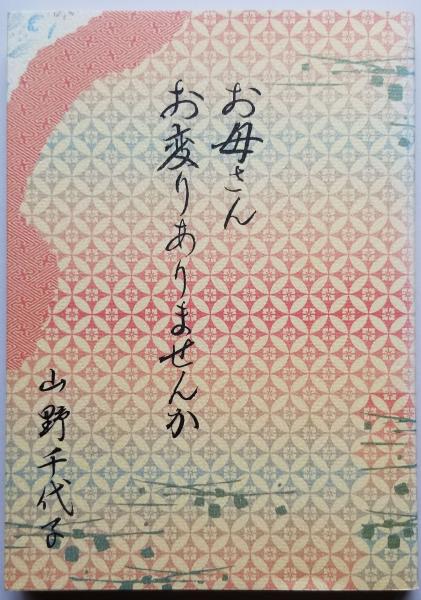 お母さん
お変りありませんか
山野千代子